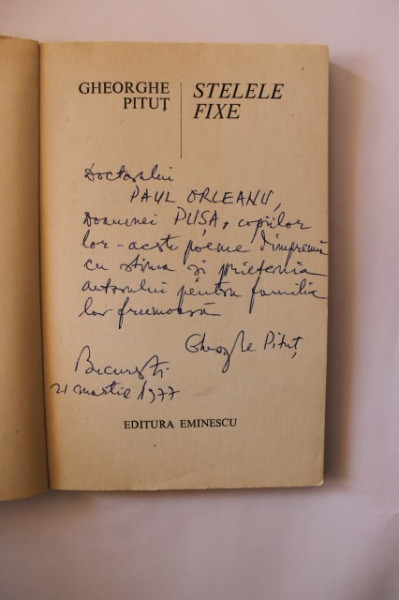 GHEORGHE PITUȚ
STELELE FIXE
Doctorului
PAUL ORLEANU,
Doamnei PUȘA, copiilor
lor – aceste poeme dimpreună
cu stima și prietenia
autorului pentru familia
lor frumoasă
Gheorghe Pituț
București
21 martie 1977
EDITURA EMINESCU